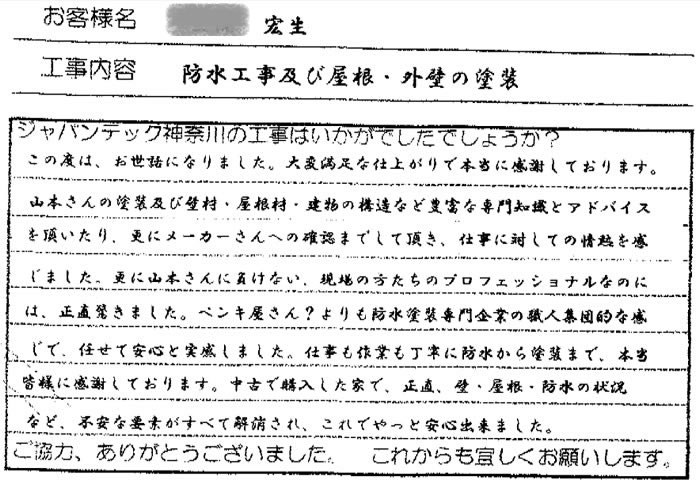 お客様名 宏生
工事内容 防水工事及び屋根・外壁の塗装
ジャパンテック神奈川の工事はいかがでしたでしょうか？
この度は、お世話になりました。大変満足な仕上がりで本当に感謝しております。
山本さんの塗装及び壁材・屋根材・建物の構造など豊富な専門知識とアドバイス
を頂いたり、更にメーカーさんへの確認までして頂き、仕事に対しての情熱を感
じました。更に山本さんに負けない、現場の方たちのプロフェッショナルなのに
は、正直驚きました。ペンキ屋さん？よりも防水塗装専門企業の職人集団的な感
じで、任せて安心と実感しました。仕事も作業も丁寧に防水から塗装まで、本当
皆様に感謝しております。中古で購入した家で、正直、壁・屋根・防水の状況
など、不安な要素がすべて解消され、これでやっと安心出来ました。
ご協力、ありがとうございました。 これからも宜しくお願いします。